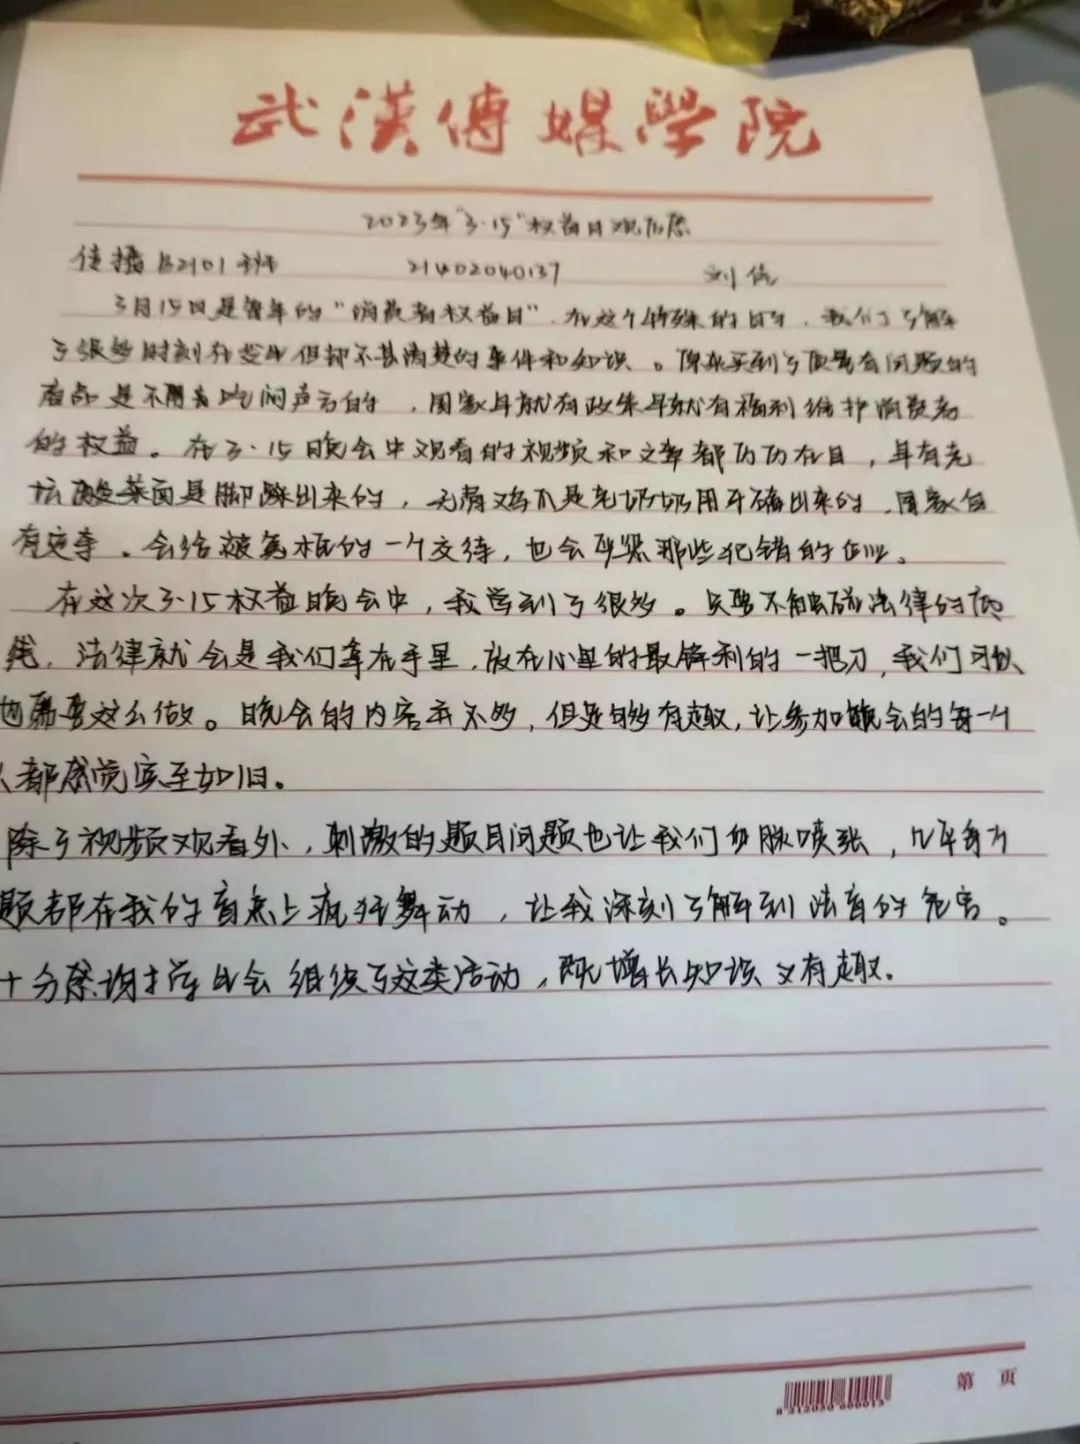 武漢傳媒學院
2023年"3·15"权益日观后感
传播B2101班 21402040137 刘
3月15日是每年的"消费者权益日",在这个特殊的日子,我们了解
了很多时刻在发生但却不甚清楚的事件和知识。原来买到了质量有问题的
商品是不用去吃闷声亏的,国家早就有政策早就有福利维护消费者
的权益。在3·15晚会中观看的视频和文章都历历在目,早有老
坛酸菜面是脚踩出来的,无骨鸡爪是老奶奶用牙啃出来的,国家自
有定夺。会给被害者的一个交待,也会严惩那些犯错的企业。
在这次3·15权益晚会中,我学到了很多。只要不触碰法律的底
线,法律就会是我们拿在手里,放在心里的最锋利的一把刀,我们
也需要这么做。晚会的内容并不多,但足够有趣,让参加晚会的每一个
人都感觉宾至如归。
除了视频观看外,刺激的题目问题也让我们血脉喷张,几乎每个
题都在我的盲点上疯狂舞动,让我深刻了解到法盲的危害。
十分感谢学生会组织了这类活动,既增长知识又有趣。
第 页